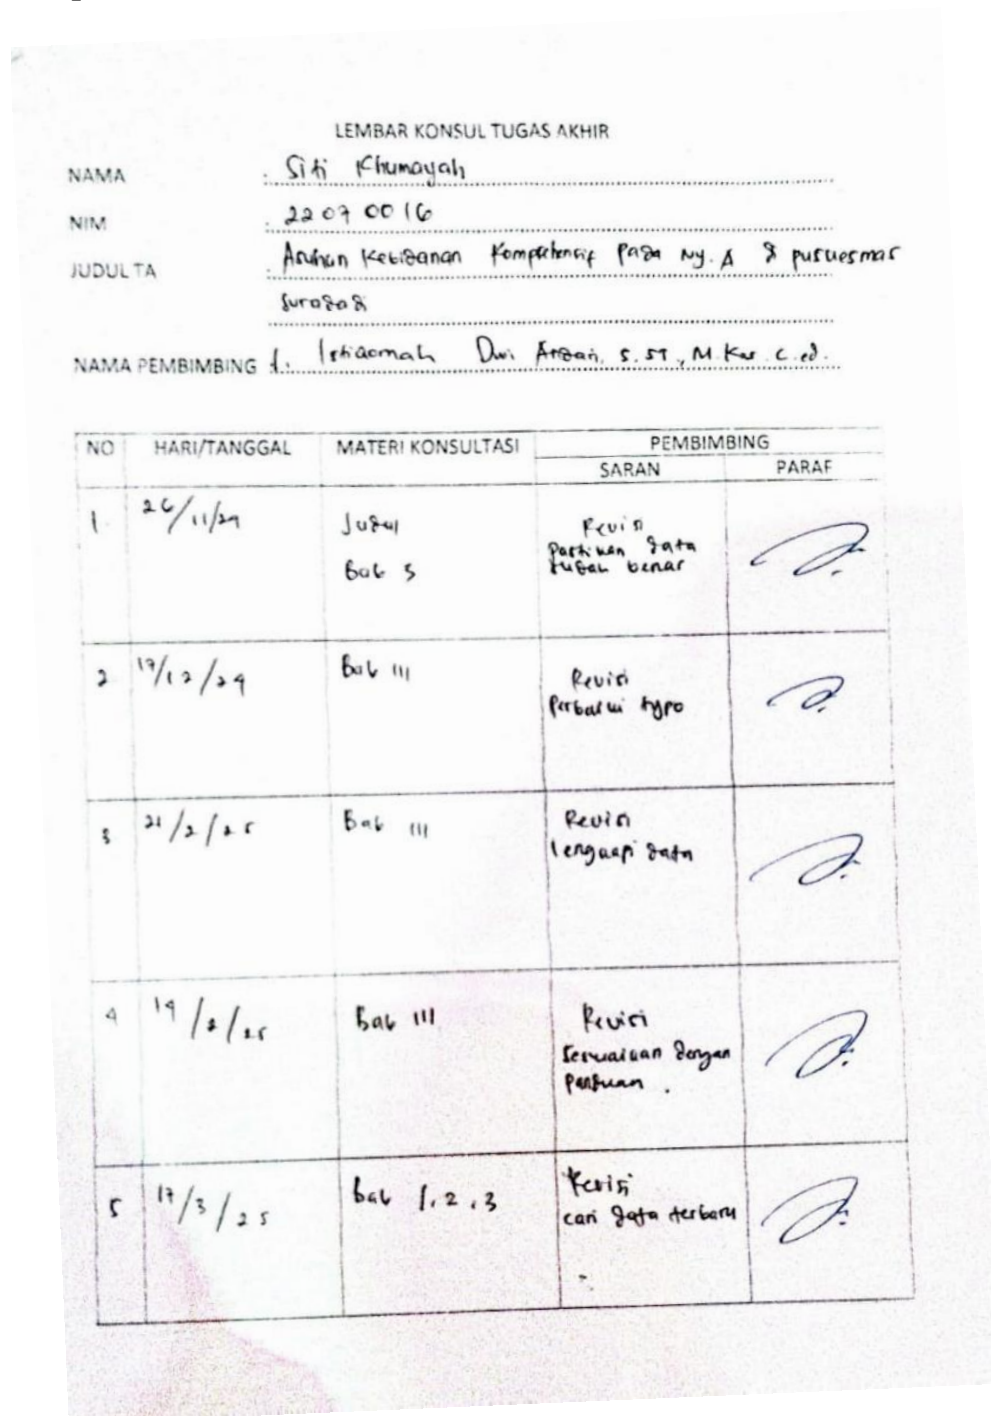 LEMBAR KONSUL TUGAS AKHIR
NAMA : Siti Khumayah
NIM : 22070016
JUDUL TA : Asuhan Kebidanan Komprehensif Pada Ny. A di puskesmas
Suradadi
NAMA PEMBIMBING 1. Istiqomah Dwi Andari, S.ST, M.Kes. C.ed.
NO HARI/TANGGAL MATERI KONSULTASI PEMBIMBING
SARAN PARAF
1. 26/11/24 Judul Revisi
Bab 3 pastikan data
sudah benar
2 17/12/24 Bab III Revisi
Perbaiki typo
3 21/2/25 Bab III Revisi
lengkapi data
4 19/2/25 Bab III Revisi
Sesuaikan dengan
panduan.
5 17/3/25 bab 1, 2, 3 Revisi
cari data terbaru